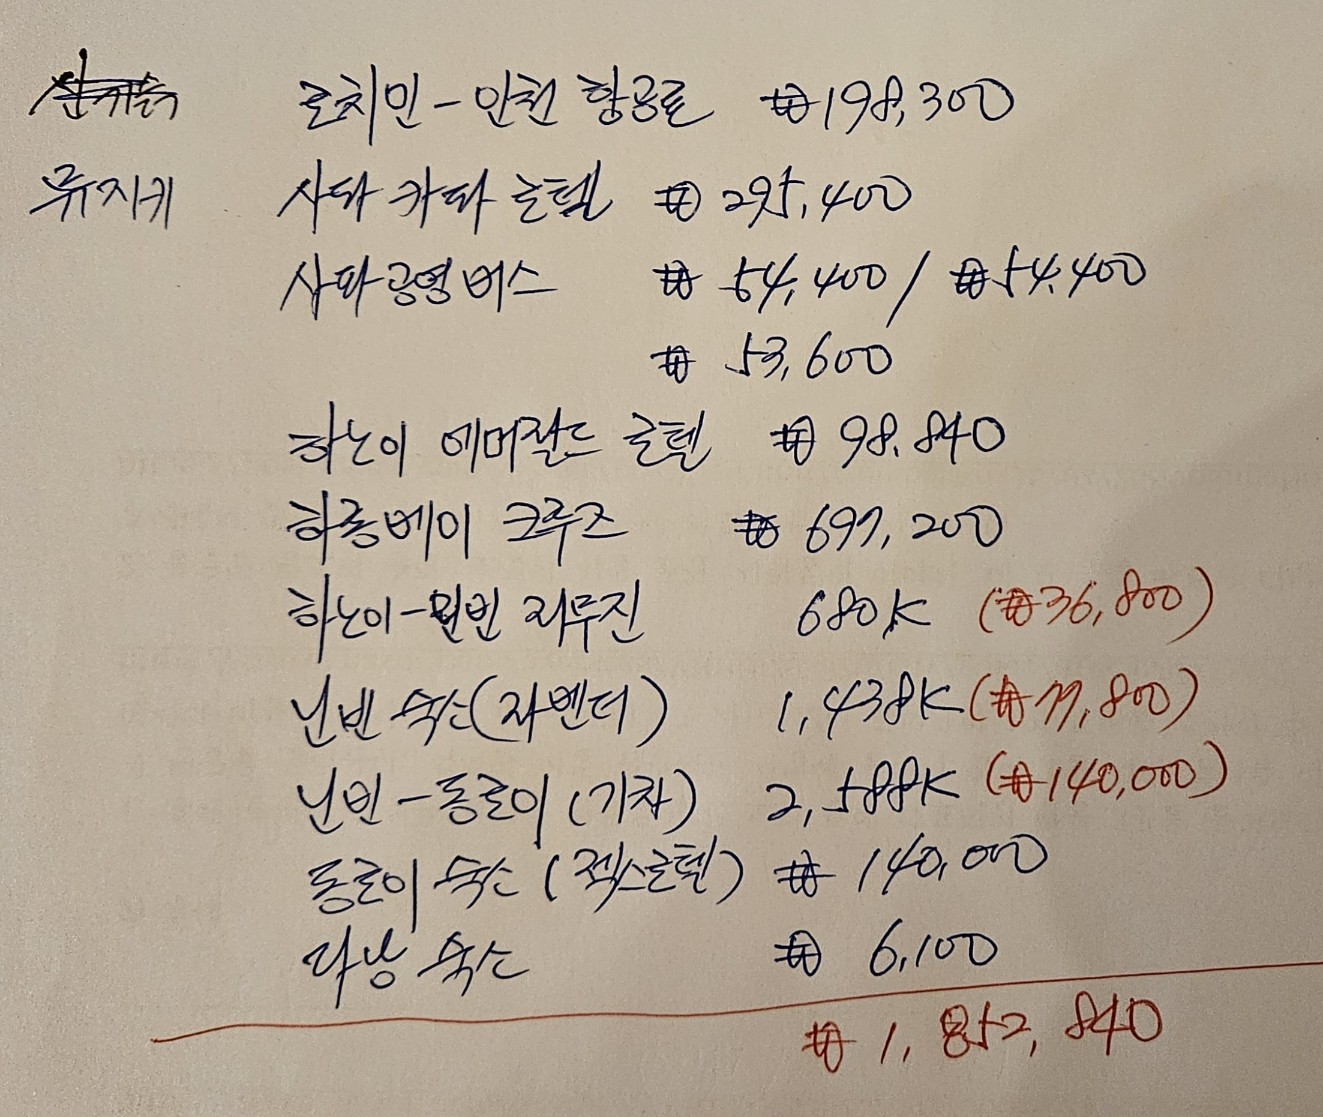 호치민-인천 항공료 ₩198,300
뮤지키 사파 카파 호텔 ₩295,400
사파공영버스 ₩54,400 / ₩54,400
₩53,600
하노이 에메랄드 호텔 ₩98,840
하롱베이 크루즈 ₩697,200
하노이-닌빈 리무진 680K (₩36,800)
닌빈 숙소(라벤더) 1,438K (₩77,800)
닌빈-동호이(기차) 2,588K (₩140,000)
동호이 숙소(젝스호텔) ₩140,000
다낭 숙소 ₩6,100
₩1,852,840